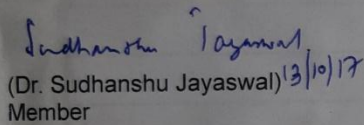 Sudhanshu Jayaswal
(Dr. Sudhanshu Jayaswal) 13/10/17
Member